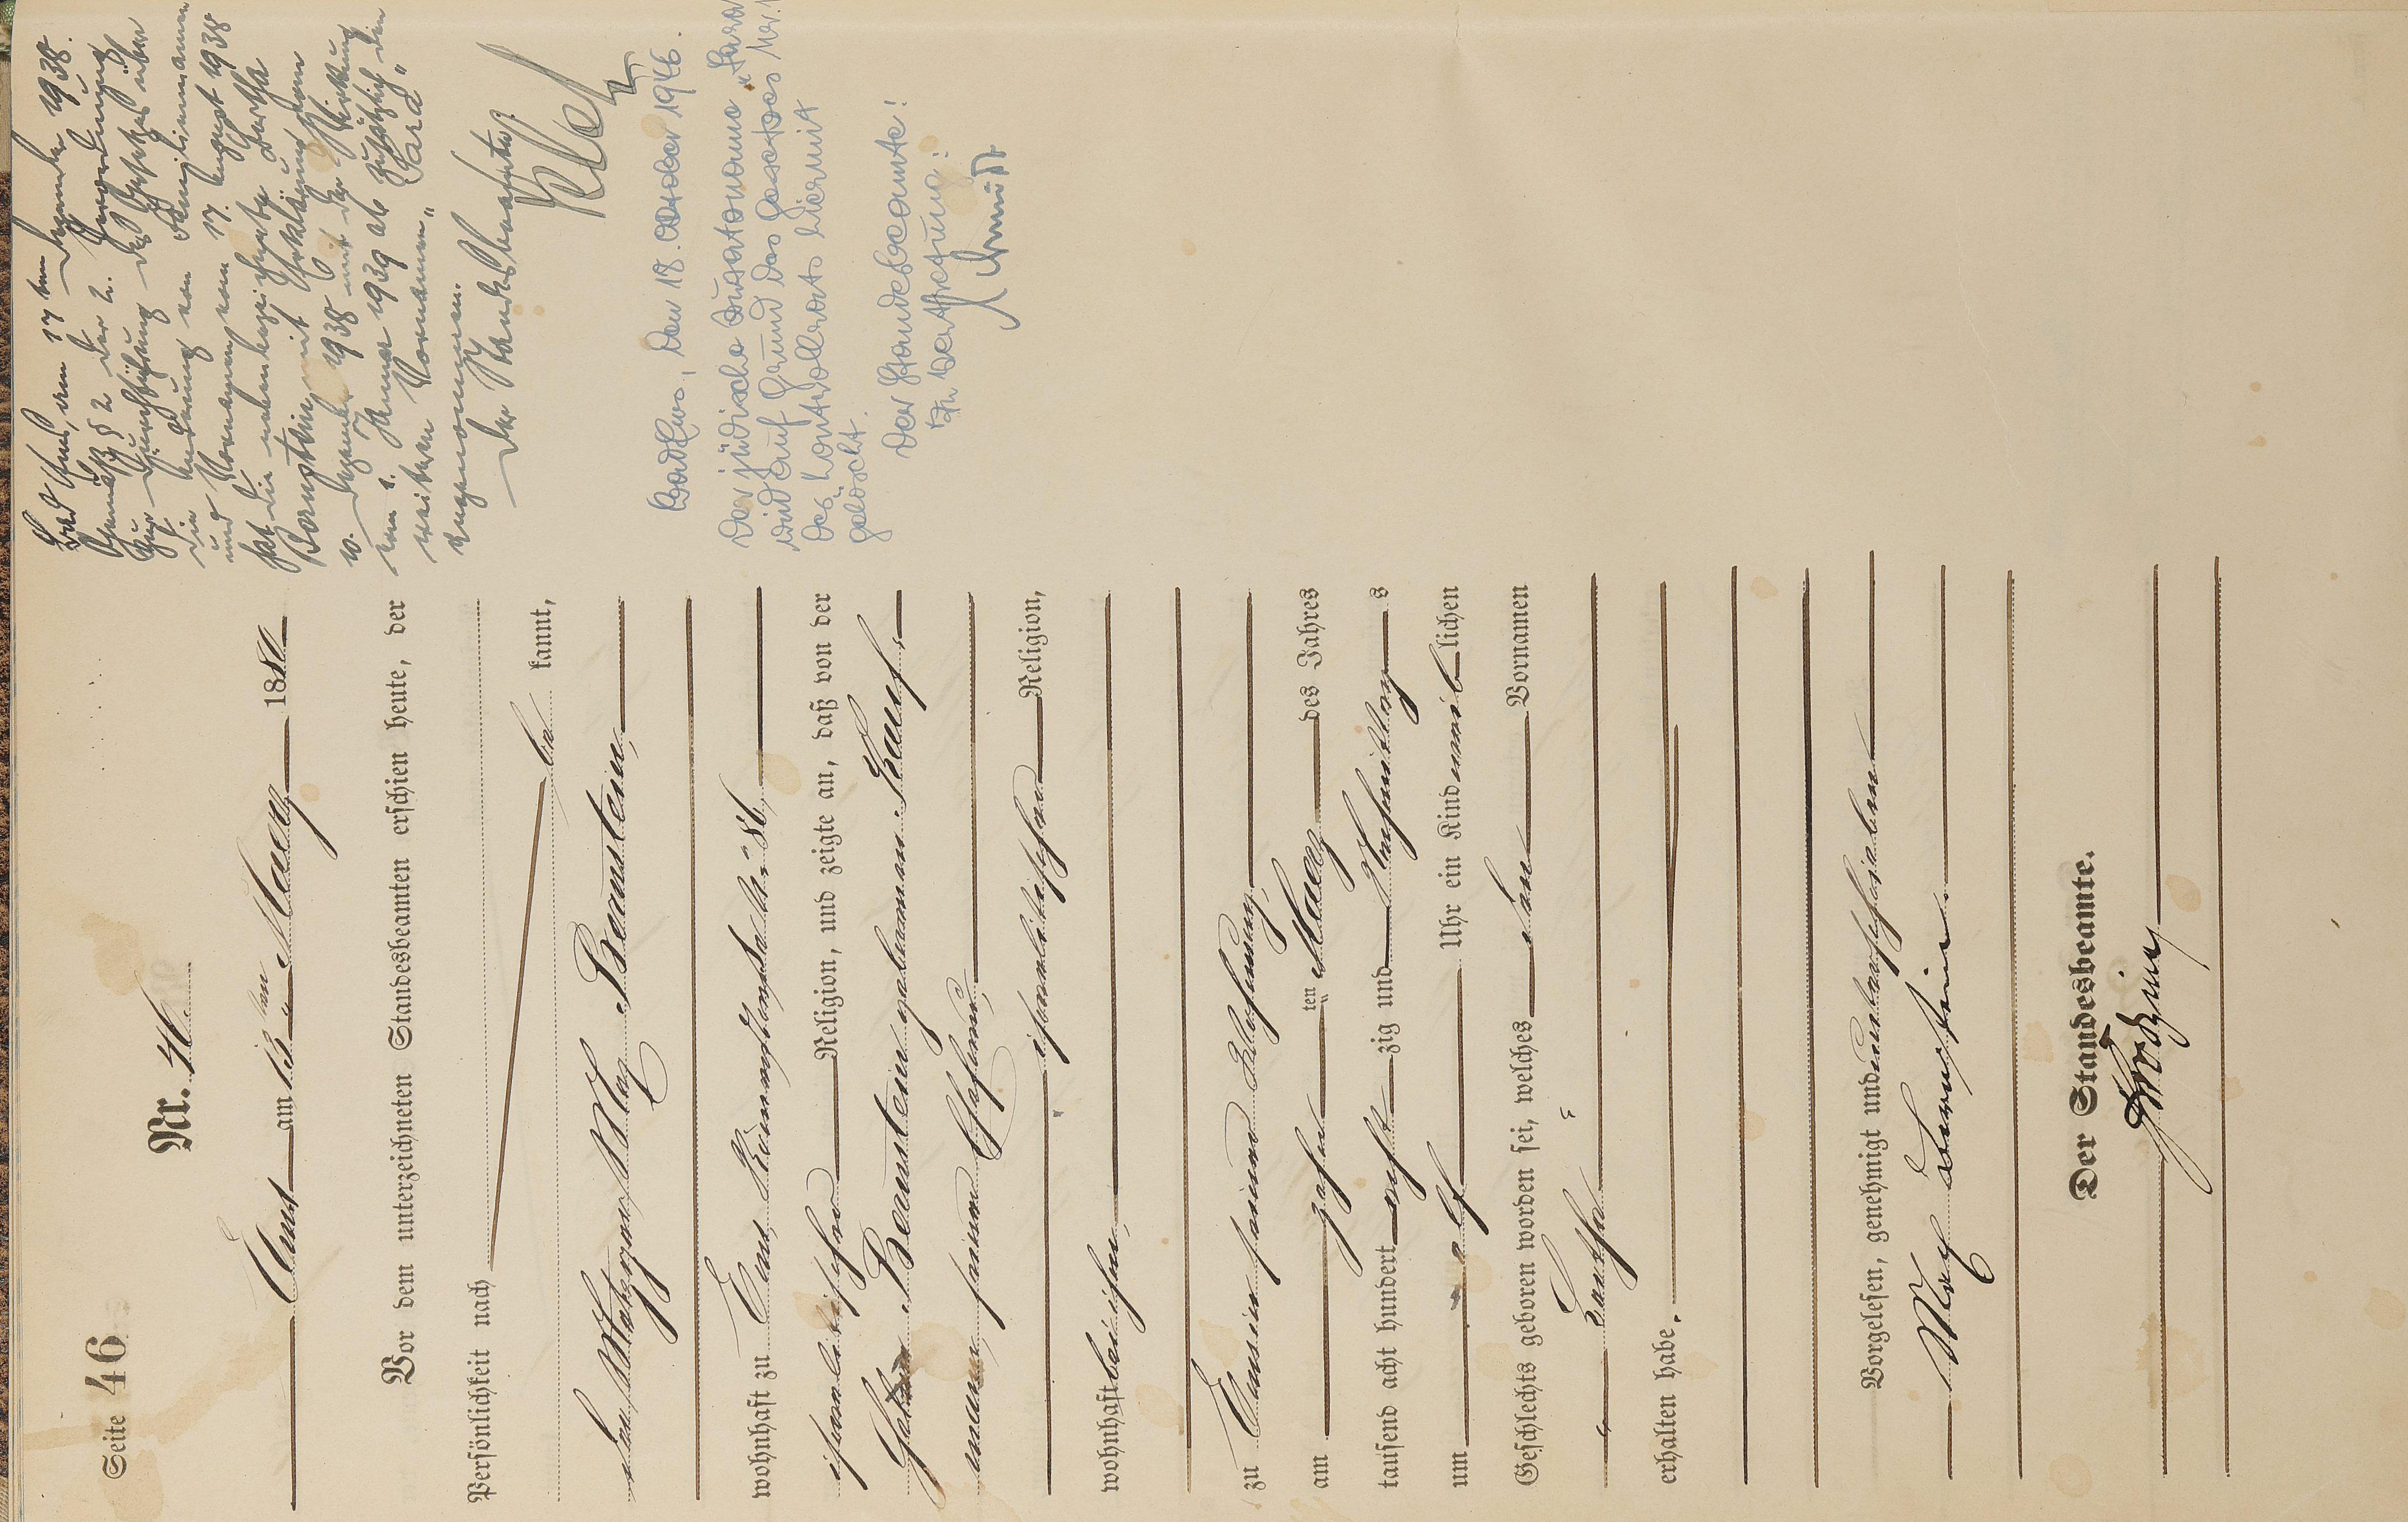 Seite 46
Nr. 46.
Ems am 13ten März 1880
Vor dem unterzeichneten Standesbeamten erschien heute, der
Persönlichkeit nach
be kannt,
der Metzger Max Bernstein,
wohnhaft zu Ems, Römerstraße Nr. 86,
israelitischer Religion, und zeigte an, daß von der
Bernstein geborenen Kauf-
mann, seiner Ehefrau,
israelitischer Religion,
wohnhaft bei ihm,
zu Ems in seiner Wohnung,
am zehnten März des Jahres
tausend acht hundert acht zig und Nachmittags
um elf Uhr ein Kind weiblichen
Geschlechts geboren worden sei, welches den Vornamen
Bertha
erhalten habe.
Vorgelesen, genehmigt und unterschrieben
Max Bernstein
Der Standesbeamte.
Bad Ems, den 17ten Dezember 1938.
Gemäß § 2 der 2. Verordnung
zur Durchführung des Gesetzes über
die Änderung von Familiennamen
und Vornamen vom 17. August 1938
hat die nebenbezeichnete Bertha
Bernstein mit Erklärung vom
10. Dezember 1938 mit der Wirkung
vom 1. Januar 1939 ab zusätzlich den
weiteren Vornamen „Sara“
angenommen.
Der Standesbeamte:
Bad Ems, den 18. Oktober 1946.
Der jüdische Zusatzname „Sara
wird auf Grund des Gesetzes Nr. 1
des Kontrollrats hiermit
gelöscht.
Der Standesbeamte!
In Vertretung:
Schmidt